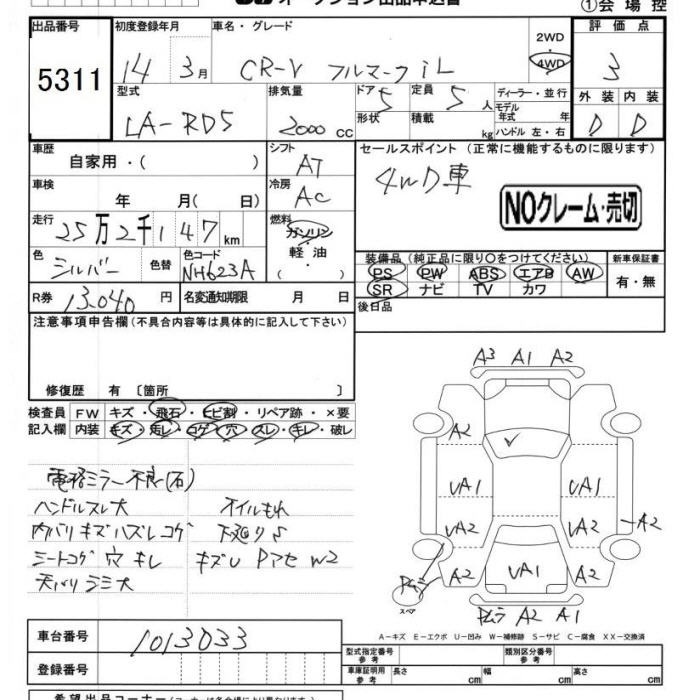 オークション出品申込書
①会場控
出品番号 初度登録年月 車名・グレード 2WD 4WD 評価点
5311 14 3月 CR-V フルマーク iL 3
型式 排気量 ドア 定員 ディーラー・並行 外装 内装
5 5人 モデル年式 年
LA-RD5 2000cc 形状 積載 kg ハンドル 左・右 D D
車歴 シフト セールスポイント (正常に機能するものに限ります)
自家用・( ) AT 4WD車
車検 冷房 NOクレーム・売切
年 月( 日) AC
走行 燃料
25万2千147km ガソリン
軽油
・( )
色 色替 色コード 装備品 (純正品に限り○をつけてください) 新車保証書
シルバー NH623A PS PW ABS エアB AW 有・無
SR ナビ TV カワ
R券 13.040円 名変通知期限 月 日 後日品
注意事項申告欄(不具合内容等は具体的に記入して下さい)
修復歴 有 〔箇所 〕
検査員 FW キズ・飛石・ヒビ割・リペア跡・×要
記入欄 内装 キズ・汚レ・コゲ・穴・スレ・キレ・破レ
電格ミラー不良(右)
ハンドルスレ大 オイルもれ
内バリキズハズレコゲ 下廻りS
シートコゲ 穴 キレ キズU Pアセ W2
天バリシミ大
A3 A1 A2
A2
UA1 UA1
UA2 UA2 A2
A2 UA1 A2
スペア
A2 A1
A-キズ E-エクボ U-凹み W-補修跡 S-サビ C-腐食 XX-交換済
車台番号 1013033
登録番号
型式指定番号 参考 類別区分番号 参考
車庫証明用 参考 長さ cm 幅 cm 高さ cm
希望出品コーナー